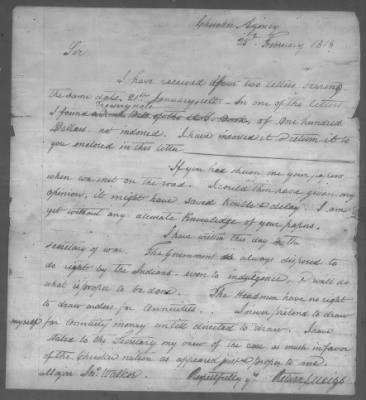 Cherokee Agency
25th February 1818
Sir
I have received your two letters bearing
the same date 21st January ulto - In one of the letters
I found a Treasury note of One hundred
Dollars no indorsed. I have inserted it & return it to
you enclosed in this letter
If you had shewn me your papers
when we met on the road. I could then have given my
opinion, it might have saved trouble & delay. I am
yet without any accurate knowledge of your papers.
I have written this day to the
Secretary of War. The Government is always disposed to
do right by the Indians - even to indulgence, & will do
what is proper to be done. The Headmen have no right
to draw orders for Annuities. I never pretend to draw
myself for annuity money untill directed to draw. I have
stated to the Secretary my view of the case as much in favor
of the Cherokee nation as appeared just & proper to me.
Major Jno. Walker. Respectfully yr Return J Meigs